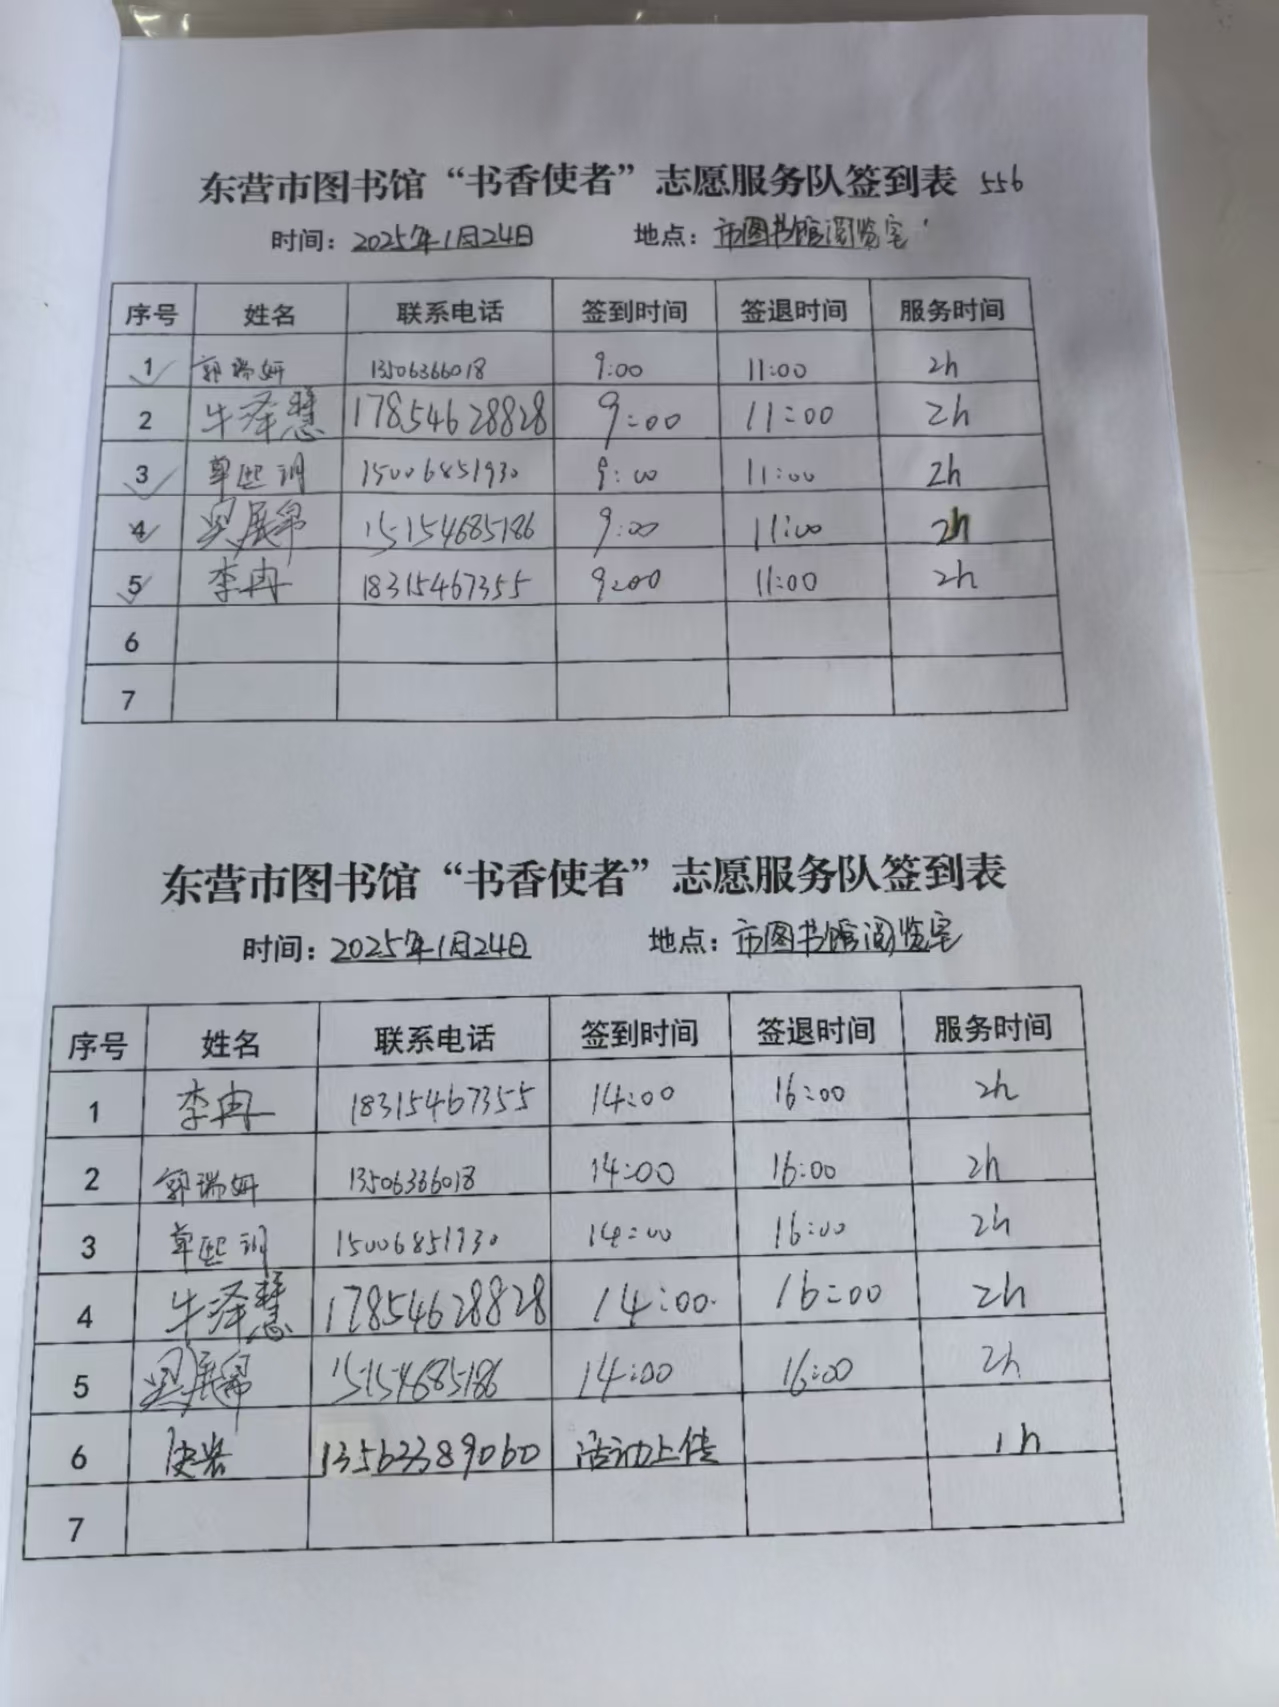 东营市图书馆“书香使者”志愿服务队签到表 556
时间：2025年1月24日 地点：市图书馆阅览室
序号 姓名 联系电话 签到时间 签退时间 服务时间
1 郭瑞妍 13506366018 9:00 11:00 2h
2 牛泽慧 17854628828 9:00 11:00 2h
3 15006851930 9:00 11:00 2h
4 15154685186 9:00 11:00 2h
5 李冉 18315467355 9:00 11:00 2h
6
7
东营市图书馆“书香使者”志愿服务队签到表
时间：2025年1月24日 地点：市图书馆阅览室
序号 姓名 联系电话 签到时间 签退时间 服务时间
1 李冉 18315467355 14:00 16:00 2h
2 郭瑞妍 13506366018 14:00 16:00 2h
3 15006851930 14:00 16:00 2h
4 牛泽慧 17854628828 14:00 16:00 2h
5 15154685186 14:00 16:00 2h
6 13562389060 活动上传 1h
7